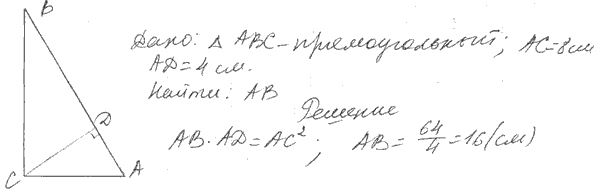 B
Дано: Δ ABC - прямоугольный; AC = 8 см
AD = 4 см.
Найти: AB
Решение
AB · AD = AC²; AB = 64/4 = 16 (см)
D
C
A